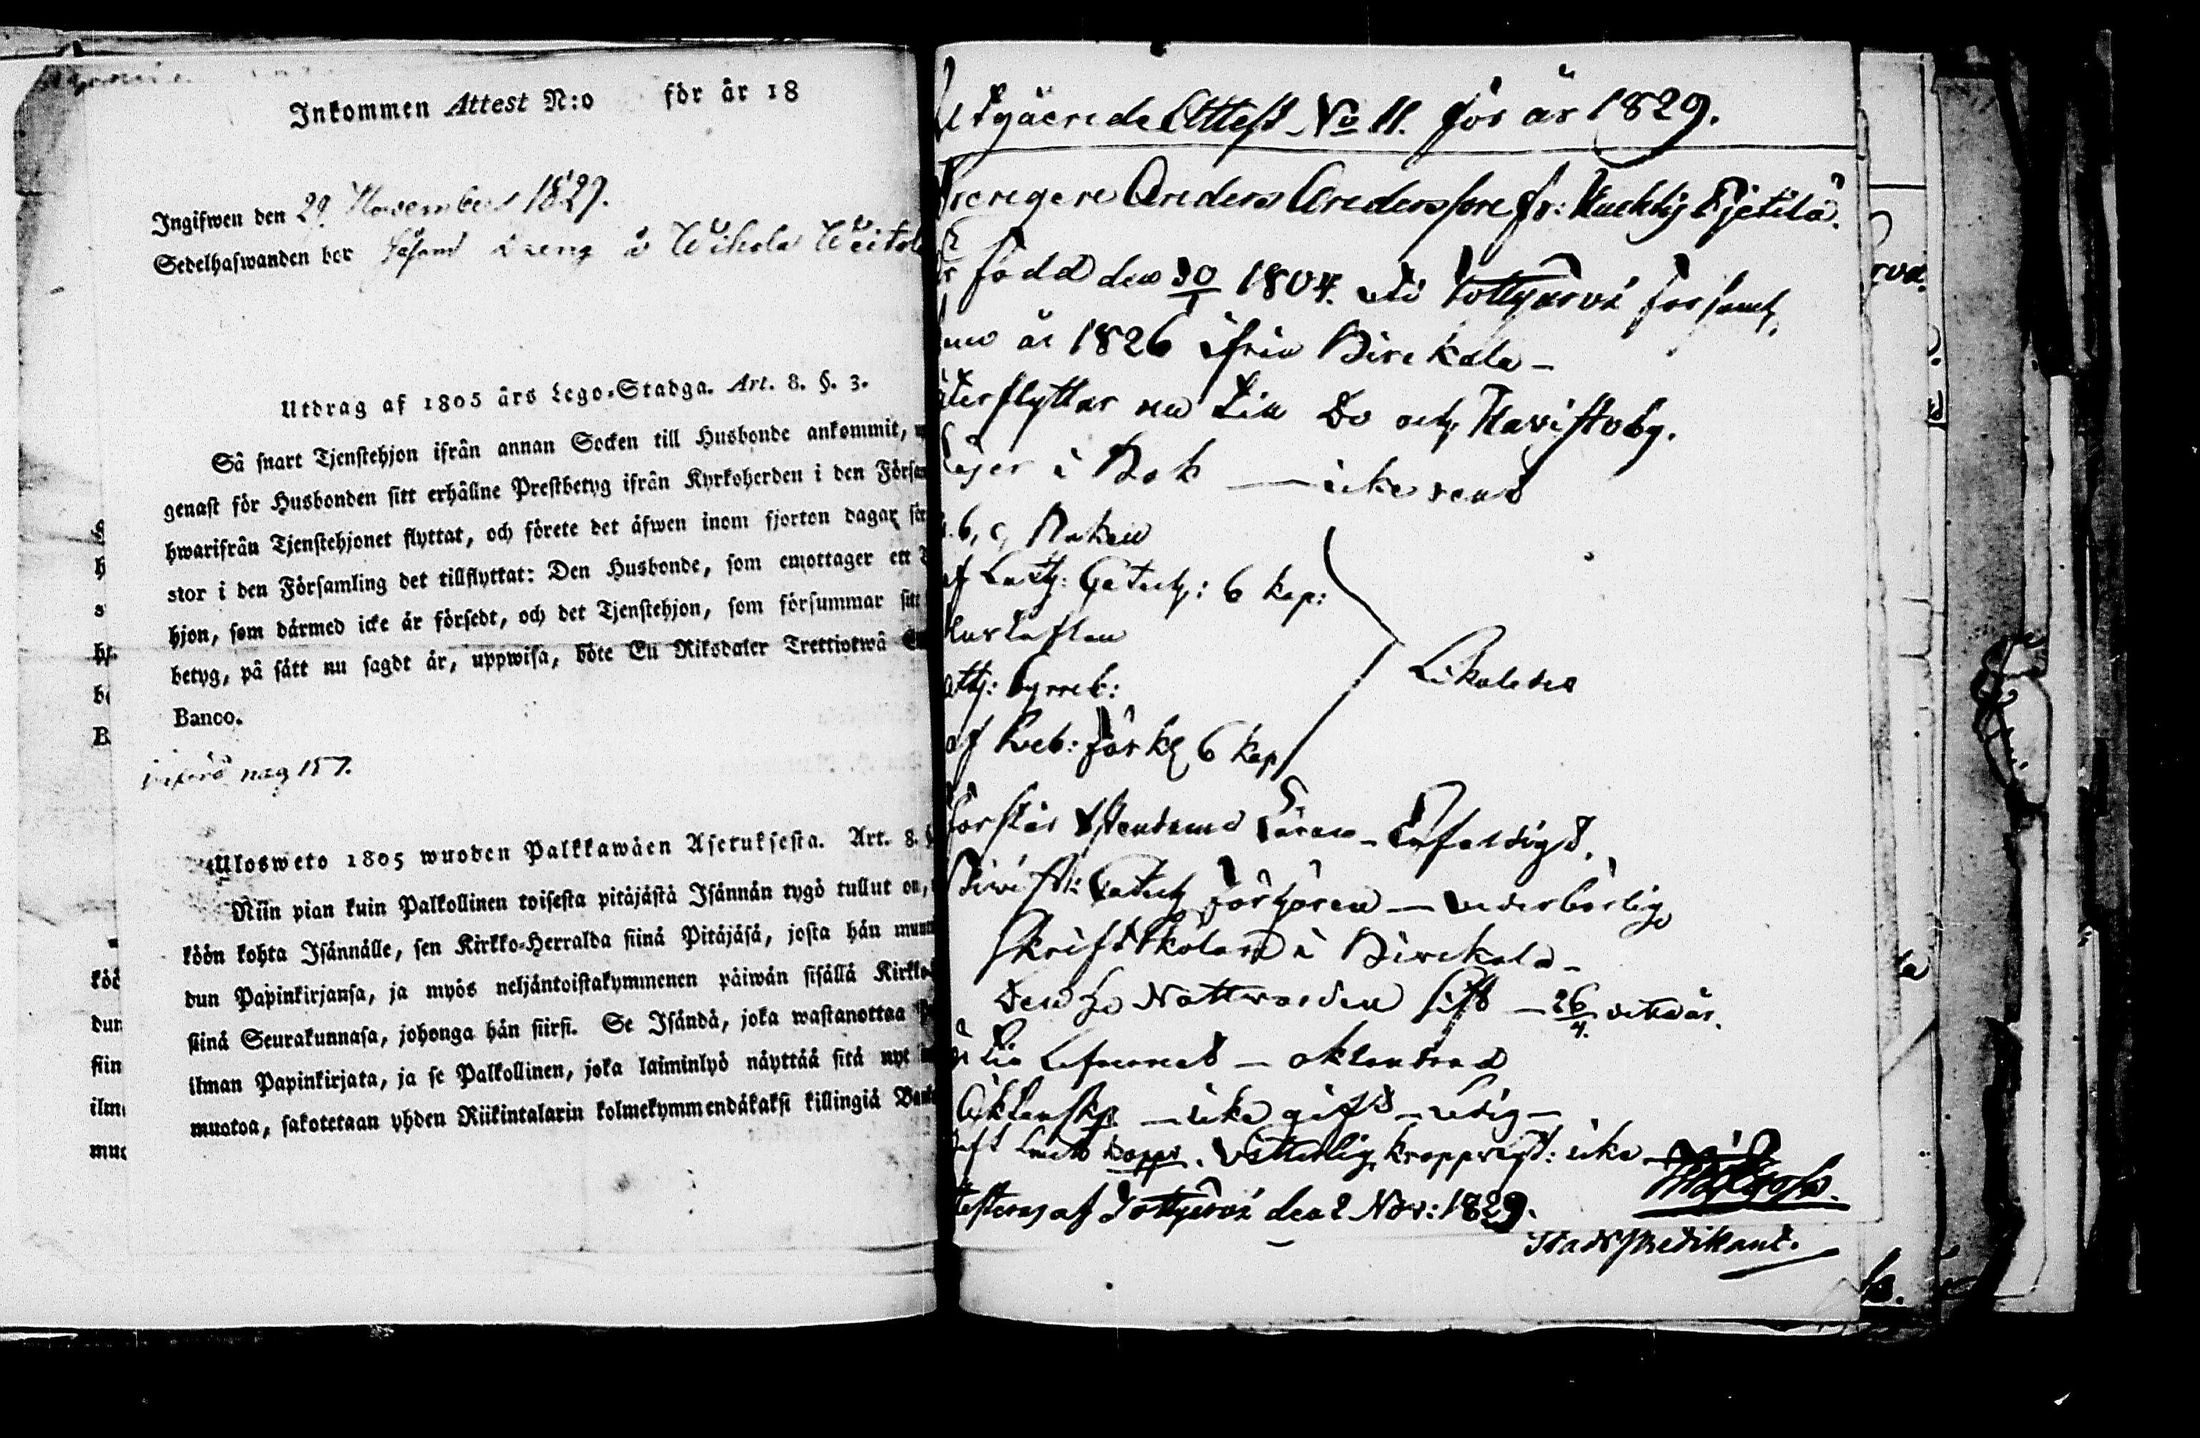 Inkommen Attest N:o för år 18
Ingifwen den 29 November 1829.
Sedelhafwanden bor såsom Dreng å Wihola
Utdrag af 1805 års Lego-Stadga. Art. 8. §. 3.
Så snart Tjenstehjon ifrån annan Socken till Husbonde ankommit,
genast för Husbonden sitt erhållne Prestbetyg ifrån Kyrkoherden i den Försa
hwarifrån Tjenstehjonet flyttat, och förete det äfwen inom fjorton dagar för
stor i den Församling det tillflyttat: Den Husbonde, som emottager ett
hjon, som därmed icke är försedt, och det Tjenstehjon, som försummar sitt
betyg, på sätt nu sagdt är, uppwisa, böte Ett Riksdaler Trettiotwå
Banco.
införd pag 157.
Ulosweto 1805 wuoden Palkkawäen Asetuksesta. Art. 8. §
Niin pian kuin Palkollinen toisesta pitäjästä Isännän tygö tullut on,
köön kohta Isännälle, sen Kirkko-Herralda siinä Pitäjäsä, josta hän
dun Papinkirjansa, ja myös neljäntoistakymmenen päiwän sisällä Kirkko
siinä Seurakunnasa, johonga hän siirsi. Se Isändä, joka wastanottaa
ilman Papinkirjata, ja se Palkollinen, joka laiminlyö näyttää sitä nyt
muotoa, sakotetaan yhden Riikintalarin kolmekymmendäkaksi killingiä Banko
Utgående Attest No 11. för år 1829.
Drengen Anders Andersson fr:
är född den 30/1 1804. uti Tottijärvi församl.
år 1826 ifrån Birckala –
återflyttar nu till Do och Havisto by.
Läser i Bok — icke rent
a. b. c. Boken
af Luth: Catech: 6 kap:
Hustaflan
Ath: Symb:
af Sveb: förkl 6 kap
Likaledes
förstår ästundom Läran – Enfaldigt.
Bivist: Catech förhören — vederbörlig
Skriftskolan i Birckala –
Den H. Nattvarden sist — 26/4. detta år.
till Lefvernet — oklandrad
Äktenskp — icke gift – ledig –
haft koppor. Vetterlig kroppslyt: icke
Attesteras af Tottijärvi den 2 Nov: 1829.
Stadspredikant.